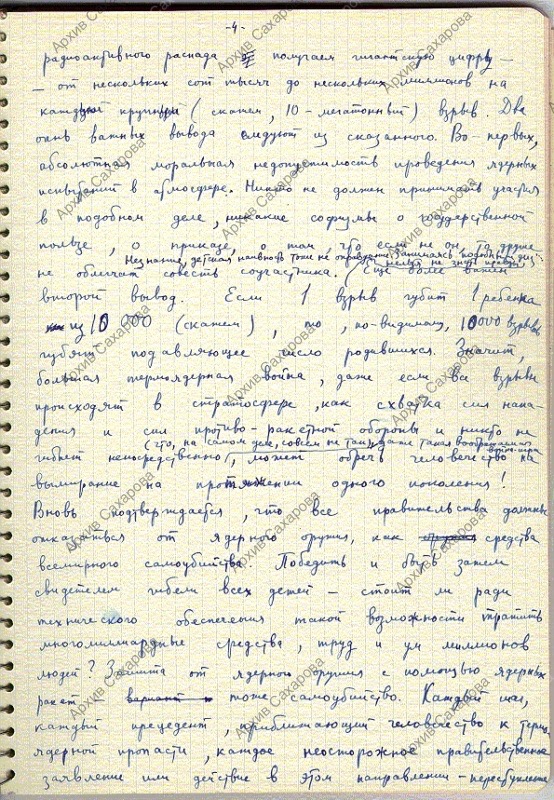 -4-
радиоактивного распада получаем гигантскую цифру –
– от нескольких сот тысяч до нескольких миллионов на
каждый крупный (скажем, 10-мегатонный) взрыв. Два
очень важных вывода следуют из сказанного. Во-первых,
абсолютная моральная недопустимость проведения ядерных
испытаний в атмосфере. Никто не должен принимать участия
в подобном деле, никакие софизмы о государственной
пользе, о приказе, о том, что если не он, то другие
Незнание, детская наивность тоже не оправдание, занимаясь подобным нельзя не знать правды
не облегчат совесть соучастника. Еще более важен
второй вывод. Если 1 взрыв губит 1 ребенка
из 10 000 (скажем), то, по-видимому, 10000 взрывов
губят подавляющее число родившихся. Значит,
большая термоядерная война, даже если все взрывы
происходят в стратосфере, как схватка сил напа-
дения и сил противо-ракетной обороны и никто не
(что, на самом деле, совсем не так), даже такая воображаемая
гибнет непосредственно, может обречь человечество на
вымирание на протяжении одного поколения!
Вновь подтверждается, что все правительства должны
отказаться от ядерного оружия, как средства
всемирного самоубийства. Победить и быть затем
свидетелем гибели всех детей – стоит ли ради
технического обеспечения такой возможности тратить
многомиллиардные средства, труд и ум миллионов
людей? Защита от ядерного оружия с помощью ядерных
ракет – тоже самоубийство. Каждый шаг,
каждый прецедент, приближающий человечество к термо-
ядерной пропасти, каждое неосторожное правительственное
заявление или действие в этом направлении – преступление
Архив Сахарова